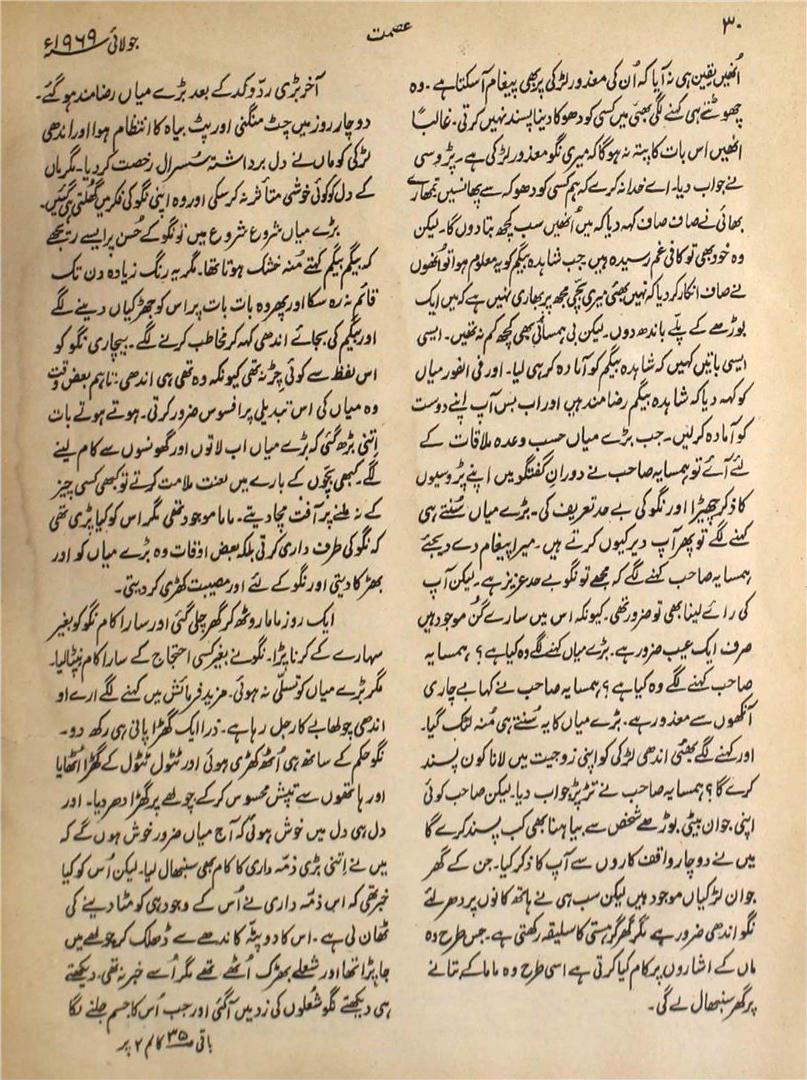 ۳۰
عصمت
جولائی ۱۹۶۹ء
اُنھیں یقین ہی نہ آیا کہ اُن کی معذور لڑکی پر بھی پیغام آسکتا ہے۔ وہ
چھوٹتے ہی کہنے لگی بھئی میں کسی کو دھوکا دینا پسند نہیں کرتی۔ غالباً
انھیں اس بات کا پتہ نہ ہوگا کہ میری نگو معذور لڑکی ہے۔ پڑوسی
نے جواب دیا۔ اے خدا نہ کرے کہ ہم کسی کو دھوکہ سے پھانسیں تمھارے
بھائی نے صاف صاف کہہ دیا کہ میں اُنھیں سب کچھ بتا دوں گا۔ لیکن
وہ خود بھی تو کافی غم رسیدہ ہیں جب شاہدہ بیگم کو یہ معلوم ہوا تو اُنھوں
نے صاف انکار کر دیا کہ نہیں بھئی میری بچی مجھ پر بھاری نہیں ہے کہ میں ایک
بوڑھے کے پلّے باندھ دوں۔ لیکن بی ہمسائی بھی کچھ کم نہ تھیں۔ ایسی
ایسی باتیں کہیں کہ شاہدہ بیگم کو آمادہ کر ہی لیا۔ اور فی الفور میاں
کو کہہ دیا کہ شاہدہ بیگم رضامند ہیں اور اب بس آپ اپنے دوست
کو آمادہ کرلیں۔ جب بڑے میاں حسب وعدہ ملاقات کے
لئے آئے تو ہمسایہ صاحب نے دورانِ گفتگو میں اپنے پڑوسیوں
کا ذکر چھیڑا اور نگو کی بے حد تعریف کی۔ بڑے میاں سُنتے ہی
کہنے لگے تو پھر آپ دیر کیوں کرتے ہیں۔ میرا پیغام دے دیجئے
ہمسایہ صاحب کہنے لگے کہ مجھے تو نگو بے حد عزیز ہے۔ لیکن آپ
کی رائے لینا بھی تو ضرور تھی۔ کیونکہ اس میں سارے گُن موجود ہیں
صرف ایک عیب ضرور ہے۔ بڑے میاں کہنے لگے وہ کیا ہے؟ ہمسایہ
صاحب کہنے لگے وہ کیا ہے؟ ہمسایہ صاحب نے کہا بے چاری
آنکھوں سے معذور ہے۔ بڑے میاں کا یہ سُنتے ہی مُنہ لٹک گیا۔
اور کہنے لگے بھئی اندھی لڑکی کو اپنی زوجیت میں لانا کون پسند
کرے گا؟ ہمسایہ صاحب نے تڑپڑ جواب دیا۔ لیکن صاحب کوئی
اپنی جوان بیٹی بوڑھے شخص سے بیاہنا بھی کب پسند کرے گا
میں نے دو چار واقف کاروں سے آپ کا ذکر کیا۔ جن کے گھر
جوان لڑکیاں موجود ہیں لیکن سب ہی نے ہاتھ کانوں پر دھر لئے
نگو اندھی ضرور ہے مگر گھر گرہستی کا سلیقہ رکھتی ہے۔ جس طرح وہ
ماں کے اشاروں پر کام کیا کرتی ہے اسی طرح وہ ماما کے بتانے
پر گھر سنبھال لے گی۔
آخر بڑی ردّوکد کے بعد بڑے میاں رضامند ہوگئے۔
دو چار روز میں چٹ منگنی اور پٹ بیاہ کا انتظام ہوا اور اندھی
لڑکی کو ماں نے دل برداشتہ سُسرال رخصت کر دیا۔ مگر ماں
کے دل کو کوئی خوشی متأثر نہ کرسکی اور وہ اپنی نگو کی فکر میں گھُلتی ہی گئیں۔
بڑے میاں شروع شروع میں تو نگو کے حُسن پر ایسے ریجھے
کہ بیگم بیگم کہتے مُنہ خشک ہوتا تھا۔ مگر یہ رنگ زیادہ دن تک
قائم نہ رہ سکا اور پھر وہ بات بات پر اس کو جھڑکیاں دینے لگے
اور بیگم کی بجائے اندھی کہہ کر مخاطب کرنے لگے۔ بیچاری نگو کو
اس لفظ سے کوئی چڑ نہ تھی کیونکہ وہ تھی ہی اندھی۔ تاہم بعض وقت
وہ میاں کی اس تبدیلی پر افسوس ضرور کرتی۔ ہوتے ہوتے بات
اتنی بڑھ گئی کہ بڑے میاں اب لاتوں اور گھونسوں سے کام لینے
لگے۔ کبھی بچّوں کے بارے میں لعنت ملامت کرتے تو کبھی کسی چیز
کے نہ ملنے پر آفت مچا دیتے۔ ماما موجود تھی مگر اس کو کیا پڑی تھی
کہ نگو کی طرف داری کرتی بلکہ بعض اوقات وہ بڑے میاں کو اور
بھڑکا دیتی اور نگو کے لئے اور مصیبت کھڑی کر دیتی۔
ایک روز ماما روٹھ کر گھر چلی گئی اور سارا کام نگو کو بغیر
سہارے کے کرنا پڑا۔ نگو نے بغیر کسی احتجاج کے سارا کام نپٹا لیا۔
مگر بڑے میاں کو تسلّی نہ ہوئی۔ مزید فرمائش میں کہنے لگے ارے او
اندھی چولھا بے کار جل رہا ہے۔ ذرا ایک گھڑا پانی ہی رکھ دو۔
نگو حکم کے ساتھ ہی اُٹھ کھڑی ہوئی اور ٹٹول ٹٹول کے گھڑا اُٹھایا
اور ہاتھوں سے تپش محسوس کرکے چولھے پر گھڑا دھر دیا۔ اور
دل ہی دل میں خوش ہوئی کہ آج میاں ضرور خوش ہوں گے کہ
میں نے اتنی بڑی ذمّہ داری کا کام بھی سنبھال لیا۔ لیکن اُس کو کیا
خبر تھی کہ اس ذمّہ داری نے اُس کے وجود ہی کو مٹا دینے کی
ٹھان لی ہے۔ اس کا دوپٹّہ کاندھے سے ڈھلک کر چولھے میں
جا پڑا تھا اور شعلے بھڑک اُٹھے تھے مگر اُسے خبر نہ تھی۔ دیکھتے
ہی دیکھتے نگو شعلوں کی زد میں آگئی اور جب اُس کا جسم جلنے لگا
باقی ۳۵ کالم ۲ پر